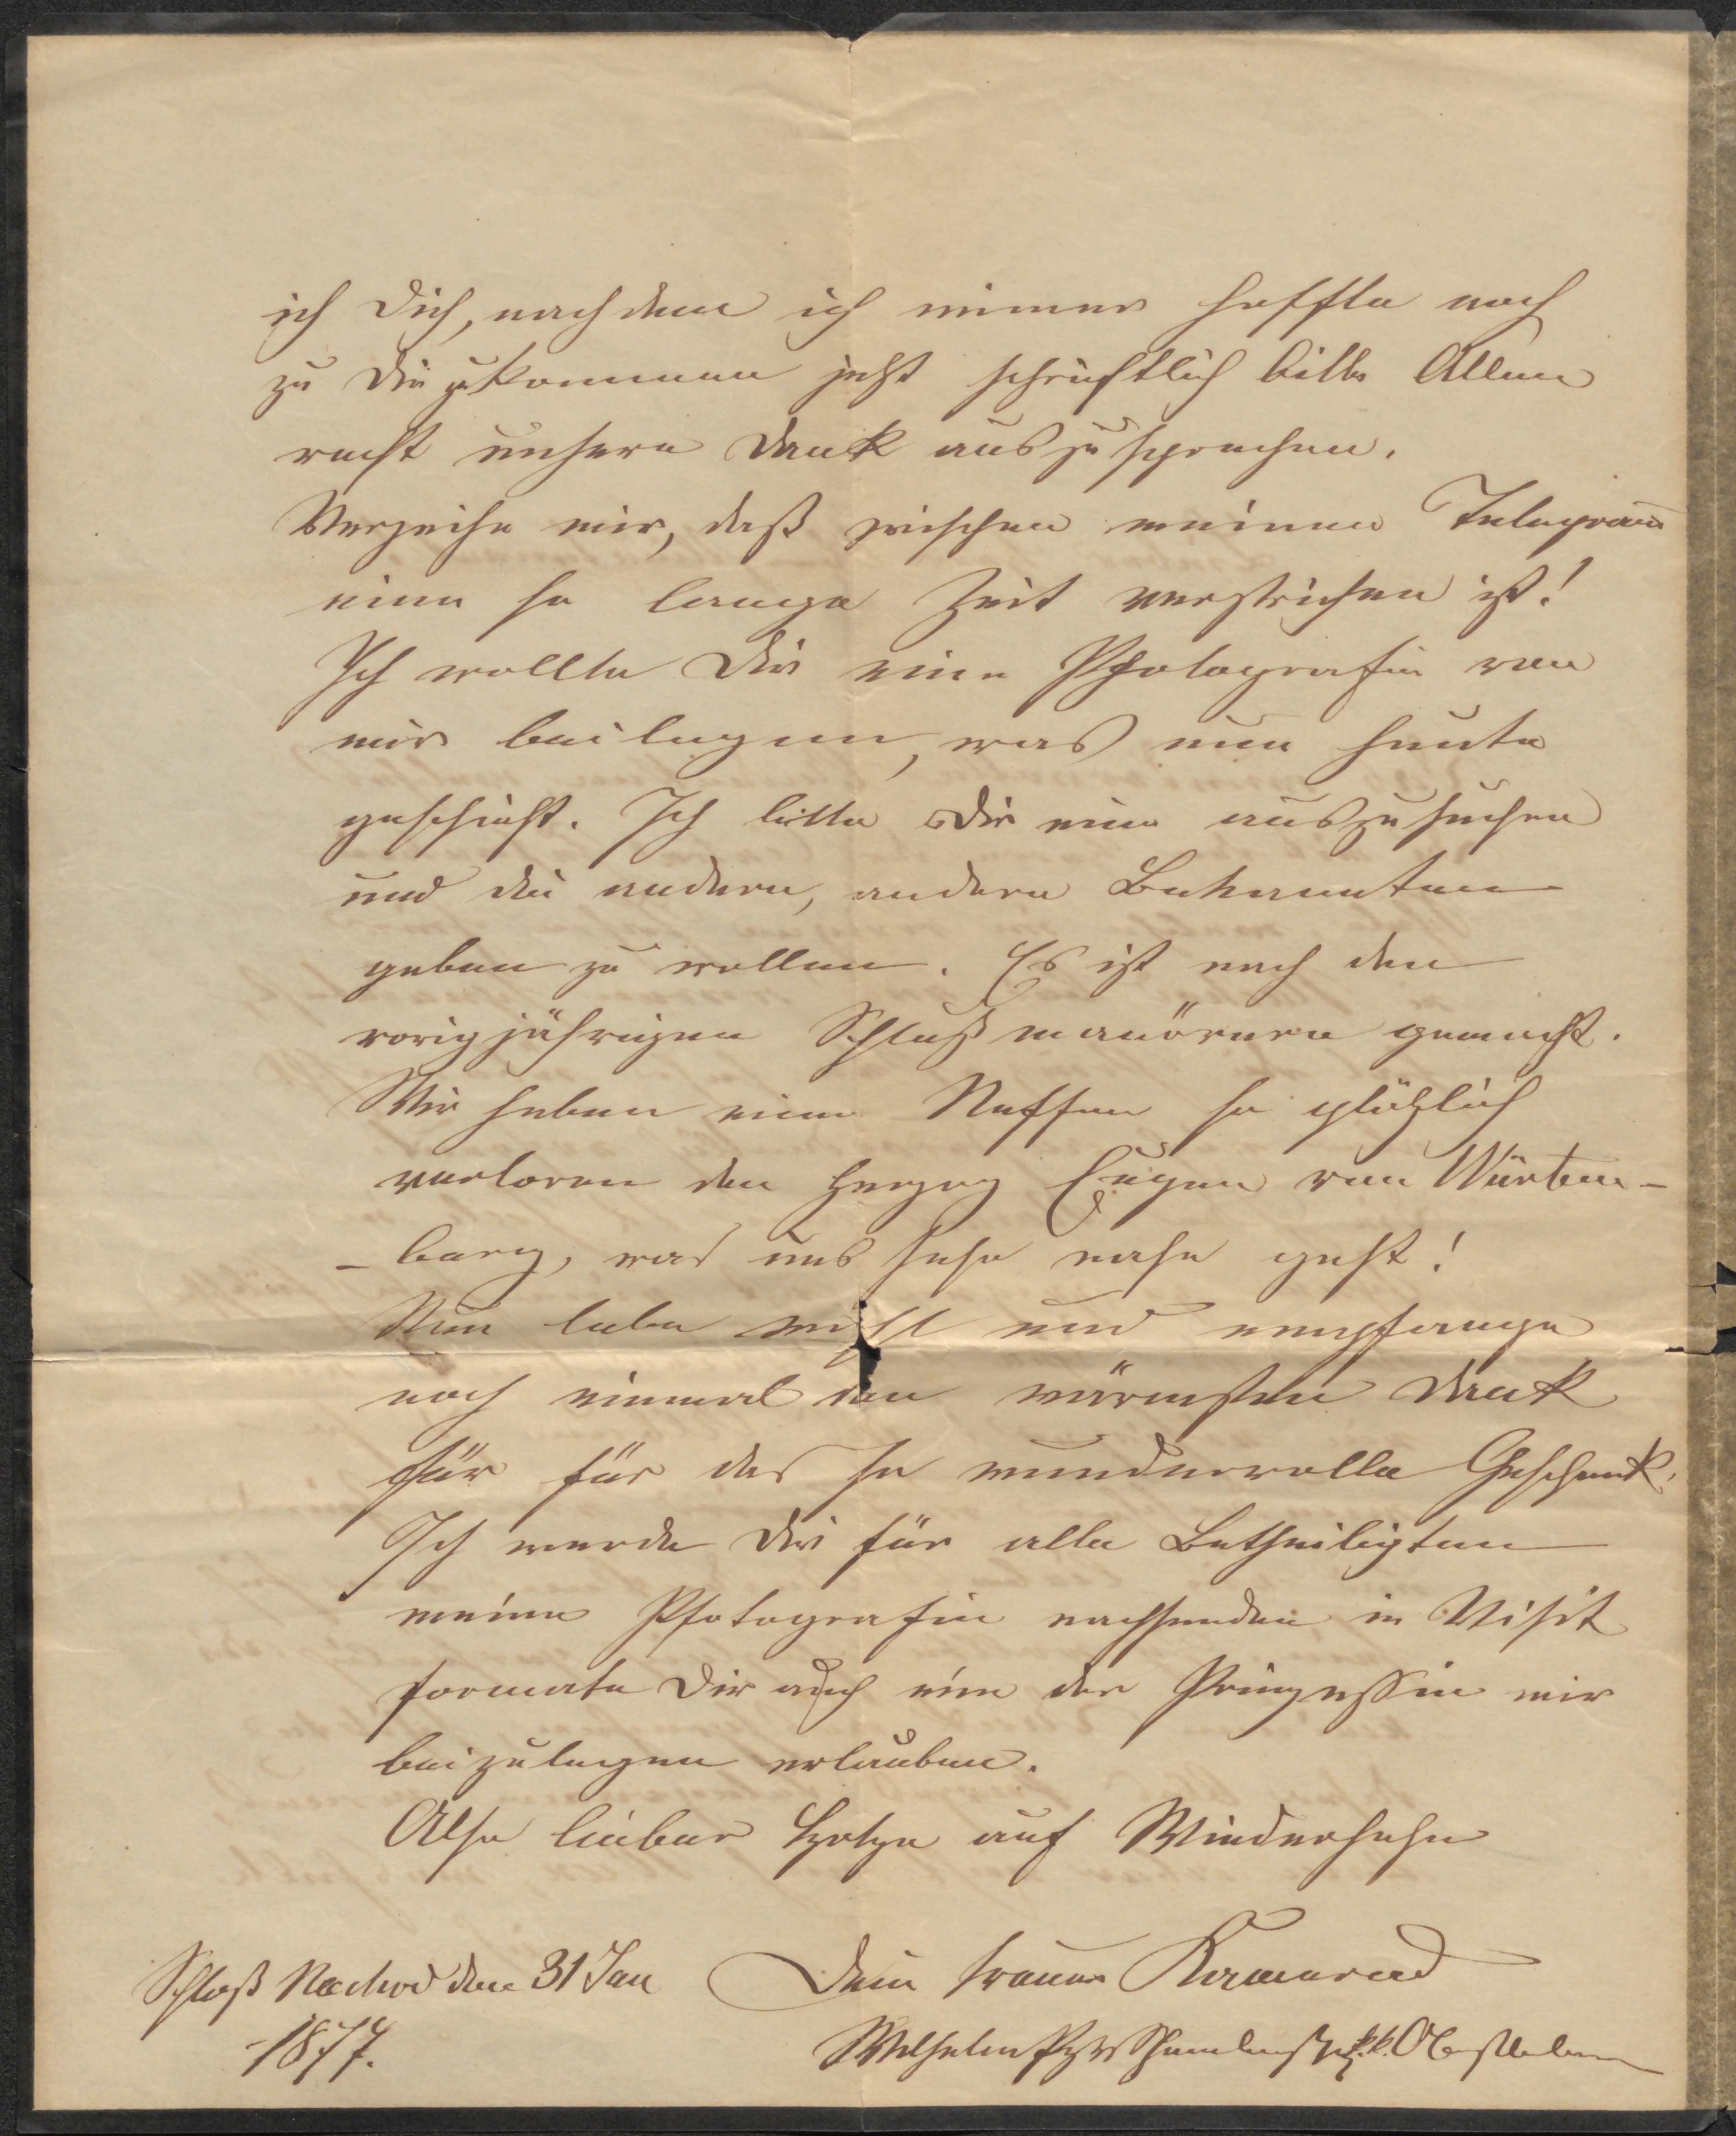 ich Dich, nachdem ich immer hoffte noch
zu Dir zu kommen jetzt schriftlich bitte Allen
recht unsern Dank auszusprechen.
Verzeihe mir, daß zwischen meinem Telegram
eine so lange Zeit verstrichen ist!
Ich wollte Dir eine Photografie von
mir beilegen, was nun heute
geschieht. Ich bitte Dir eine auszusuchen
und die andern, andern Bekannten
geben zu wollen. Es ist nach den
vorigjährigen Schlußmanövern gemacht.
Wir haben einen Neffen so plötzlich
verloren den Herzog Eugen von Würtem-
-berg, was uns sehr nahe geht!
Nun lebe wohl und empfange
noch einmal den wärmsten Dank
für für das so wundervolle Geschenk.
Ich werde Dir für alle Betheiligten
meine Photografie nachsenden in Visit
formate Dir auch eine der Prinzessin mir
beizulegen erlauben.
Also lieber auf Wiedersehn
Dein treuer Kamerad
Schloß Nachod den 31 Jan
1877.
Wilhelm Pz Schaumburg k.k. Oberstlieutn